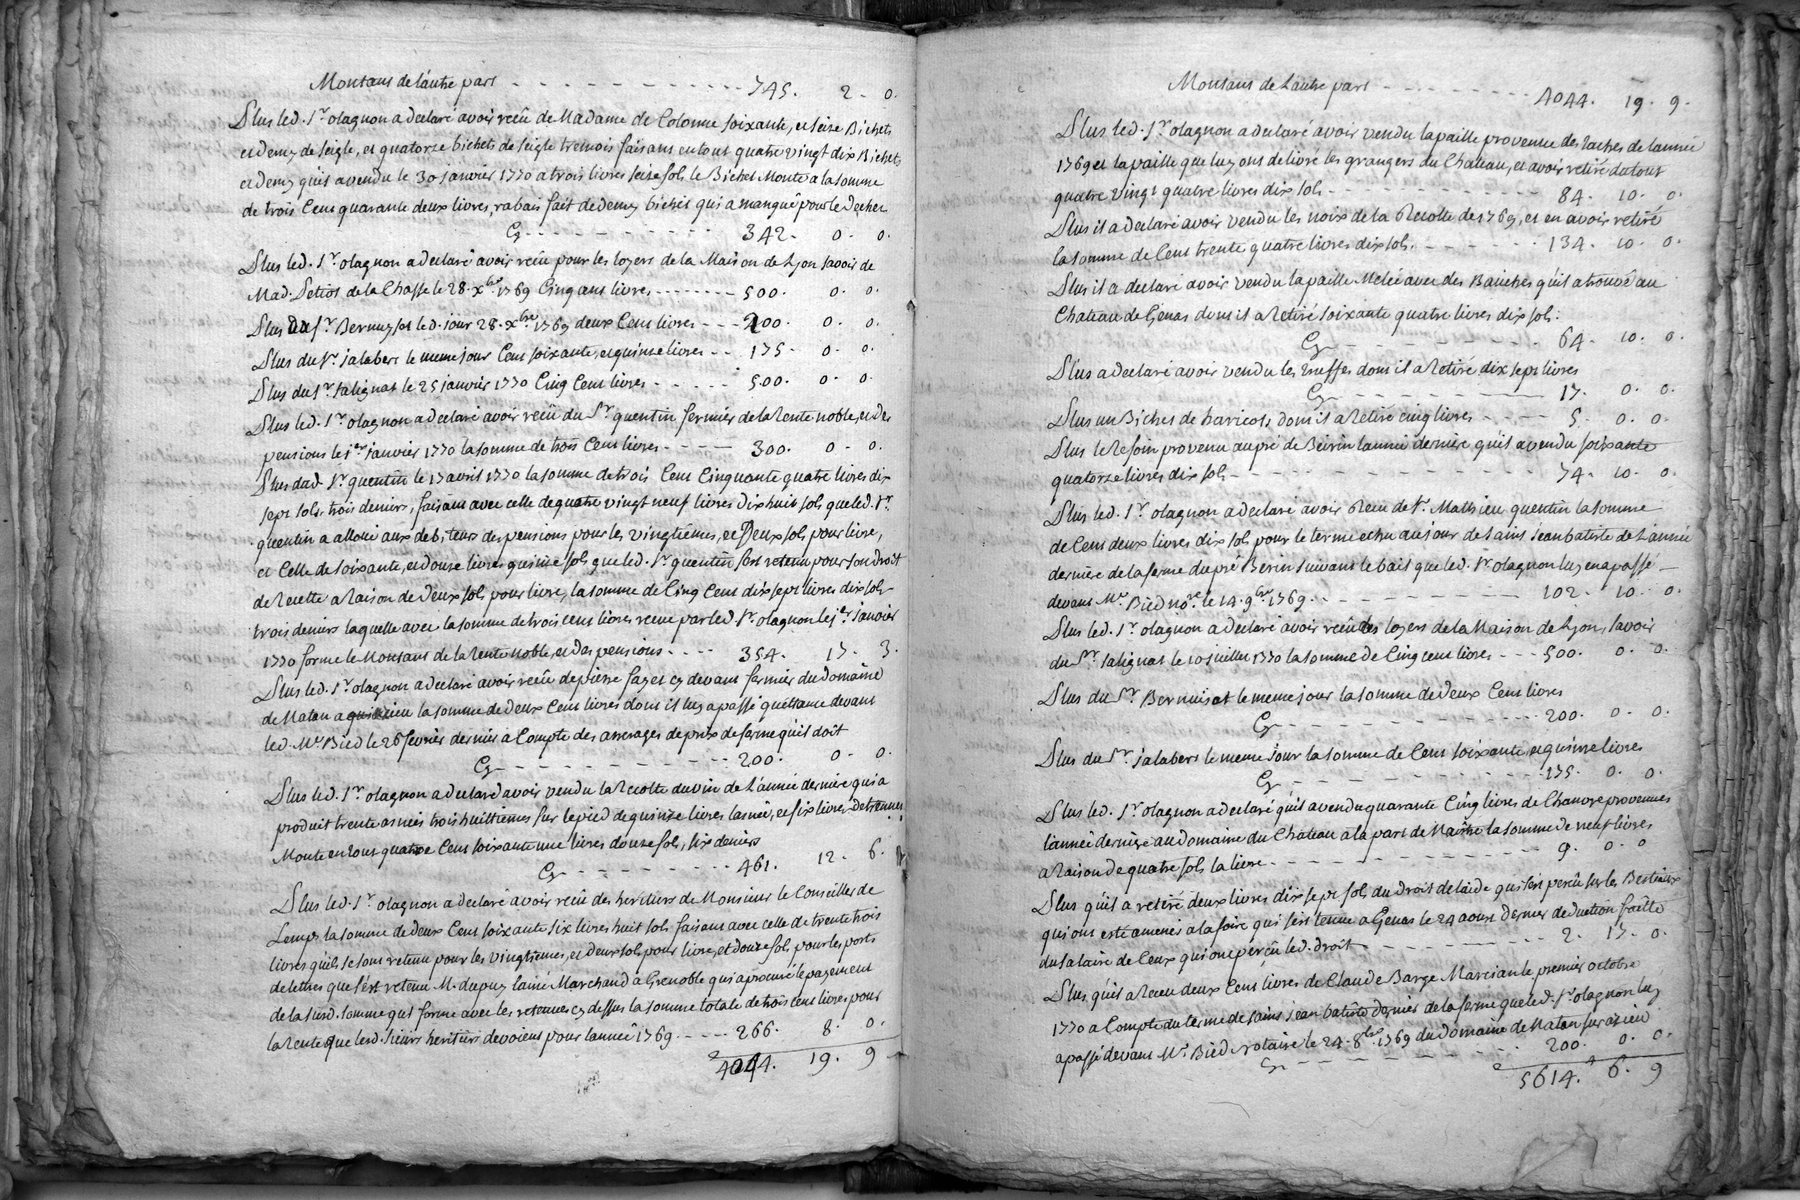 Montant de lautre part - - - - - - - - - - 745. 2. 0.
Plus led. Sr. olagnon a declaré avoir recû de Madame de Colonne soixante, et seize Bichets
et demy de seigle, et quatorze bichets de seigle tremois faisant en tout quatre vingt dix Bichets
et demy quil a vendu le 30 janvier 1770 a trois livres seize sols le Bichet Monte a la somme
de trois Cent quarante deux livres, rabais fait de demy bichet qui a manqué pour le dechet
Cy - - - - - - - - - - 342. 0. 0.
Plus led. Sr. olagnon a declaré avoir recû pour les loyers de la Maison de Lyon savoir de
Mad. de la Chasse le 28. xbre. 1769 Cinq cent livres - - - - - - 500. 0. 0.
Plus du Sr. Bernuzet led. jour 28. xbre. 1769 deux Cent livres - - - 200. 0. 0.
Plus du Sr. jalabert le meme jour Cent soixante, et quinze livres - - 175. 0. 0.
Plus du Sr. salignat le 25 janvier 1770 Cinq Cent livres - - - - - - 500. 0. 0.
Plus led. Sr. olagnon a declaré avoir recû du Sr. quentin fermier de la Rente noble, et des
pensions le 1er. janvier 1770 la somme de trois Cent livres - - - - - 300. 0. 0.
Plus dud. Sr. quentin le 17 avril 1770 la somme de trois Cent Cinquante quatre livres dix
sept sols, trois deniers, faisant avec celle de quatre vingt neuf livres dix huit sols que led. Sr.
quentin a alloué aux debiteurs des pensions pour les vingtiemes, et Deux sols pour livre,
et Celle de soixante, et douze livres quinze sols que led. Sr. quentin s'est retenu pour son droit
de Recette a Raison de Deux sols pour livre, la somme de Cinq Cent dix sept livres dix sols
trois deniers laquelle avec la somme de trois cent livres recue par led. Sr. olagnon le 1er. janvier
1770 forme le Montant de la Rente noble, et des pensions - - - - 354. 17. 3.
Plus led. Sr. olagnon a declaré avoir recû de pierre fayet cy devant fermier du domaine
de Matan la somme de deux Cent livres dont il luy a passé quittance devant
led. Me. Bied le 26 fevrier dernier a Compte des arrerages de prix de ferme quil doit
Cy - - - - - - - - - - 200. 0. 0.
Plus led. Sr. olagnon a declaré avoir vendu la Recolte du vin de l'année derniere qui a
produit trente asnées trois huittiemes sur le pied de quinze livres lasnée, et six livres detrennes
Monte en tout quatre Cent soixante une livres douze sols, six deniers
Cy - - - - - - - - - - 461. 12. 6.
Plus led. Sr. olagnon a declaré avoir recû des heritiers de Monsieur le Conseiller de
Lemps la somme de deux Cent soixante six livres huit sols faisant avec celle de trente trois
livres quils se sont retenu pour les vingtiemes, et deux sols pour livre, et douze sols pour les ports
de lettres que sest retenu M. dupuy lainé Marchand a Grenoble qui a procuré le payement
de la susd. somme qui forme avec les retenues cy dessus la somme totale de trois cent livres pour
la Rente que lesd. sieurs heritiers devoient pour lannée 1769 - - - - 266. 8. 0.
4044. 19. 9
Montant de Lautre part - - - - - - - - - - 4044. 19. 9.
Plus led. Sr. olagnon a declaré avoir vendu la paille provenue des taches de lannée
1769 et la paille que luy ont delivré les grangers du Chateau, et avoir retiré du tout
quatre vingt quatre livres dix sols - - - - - - - - - - 84. 10. 0.
Plus il a declaré avoir vendu les noix de la Recolte de 1769, et en avoir retiré
la somme de Cent trente quatre livres dix sols. - - - - - - - 134. 10. 0.
Plus il a declaré avoir vendu la paille Melée avec des Bauches quil a trouvé au
Chateau de Genas dont il a Retiré soixante quatre livres dix sols.
Cy - - - - - - - - - - 64. 10. 0.
Plus a declaré avoir vendu les truffes dont il a Retiré dix sept livres
Cy - - - - - - - - - - 17. 0. 0.
Plus un Bichet de haricots dont il a Retiré cinq livres - - - - - 5. 0. 0.
Plus le Refoin provenu au pré de Beirin lannée derniere quil a vendu soixante
quatorze livres dix sols - - - - - - - - - - 74. 10. 0.
Plus led. Sr. olagnon a declaré avoir Recu de Sr. Mathieu quentin la somme
de Cent deux livres dix sols pour le terme echu au jour de saint jean batiste de l'année
derniere de la ferme du pré Beirin suivant le bail que led. Sr. olagnon luy en a passé
devant Me. Bied nore. le 14. 9bre. 1769. - - - - - - - - - - 102. 10. 0.
Plus led. Sr. olagnon a declaré avoir recû des loyers de la Maison de Lyon, savoir
du Sr. salignat le 10 juillet 1770 la somme de Cinq cent livres - - - 500. 0. 0.
Plus du Sr. Bernuisat le meme jour la somme de deux Cent livres
Cy - - - - - - - - - - 200. 0. 0.
Plus du Sr. jalabert le meme jour la somme de Cent soixante, et quinze livres
Cy - - - - - - - - - - 175. 0. 0.
Plus led. Sr. olagnon a declaré quil a vendu quarante Cinq livres de Chanvre provenues
lannée derniere au domaine du Chateau a la part de Maitre la somme de neuf livres
a Raison de quatre sols la livre - - - - - - - - - - 9. 0. 0
Plus quil a retiré deux livres dix sept sols du droit de laide qui sest percû sur les Bestiaux
qui ont esté amenés a la foire qui sest tenue a Genas le 24 aoust dernier deduction faitte
du salaire de Ceux qui ont perçû led. droit - - - - - - - - 2. 17. 0.
Plus quil a Recu deux Cent livres de Claude Barge Marcian le premier octobre
1770 a Compte du terme de saint jean batiste dernier de la ferme que led. Sr. olagnon luy
a passé devant Me. Bied Notaire le 24. 8bre. 1769 du domaine de Matan
Cy - - - - - - - - - - 200. 0. 0.
5614. 6. 9